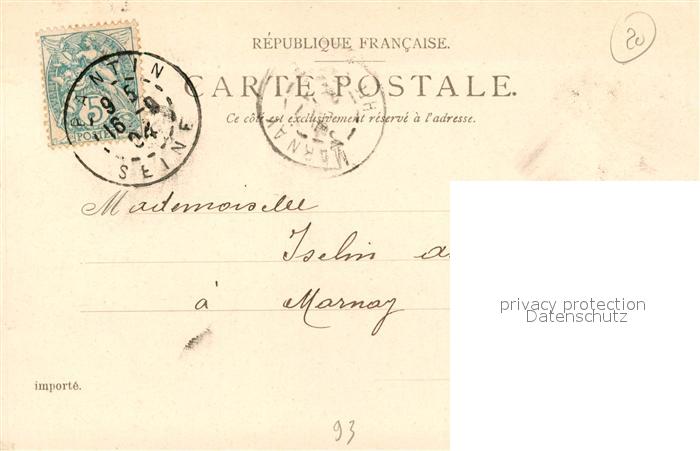 RÉPUBLIQUE FRANÇAISE.
20
CARTE POSTALE.
Ce côté est exclusivement réservé à l'adresse.
PANTIN
SEINE
5
POSTES
Mademoiselle
Iselin
à Marnay
privacy protection
Datenschutz
importé.
93